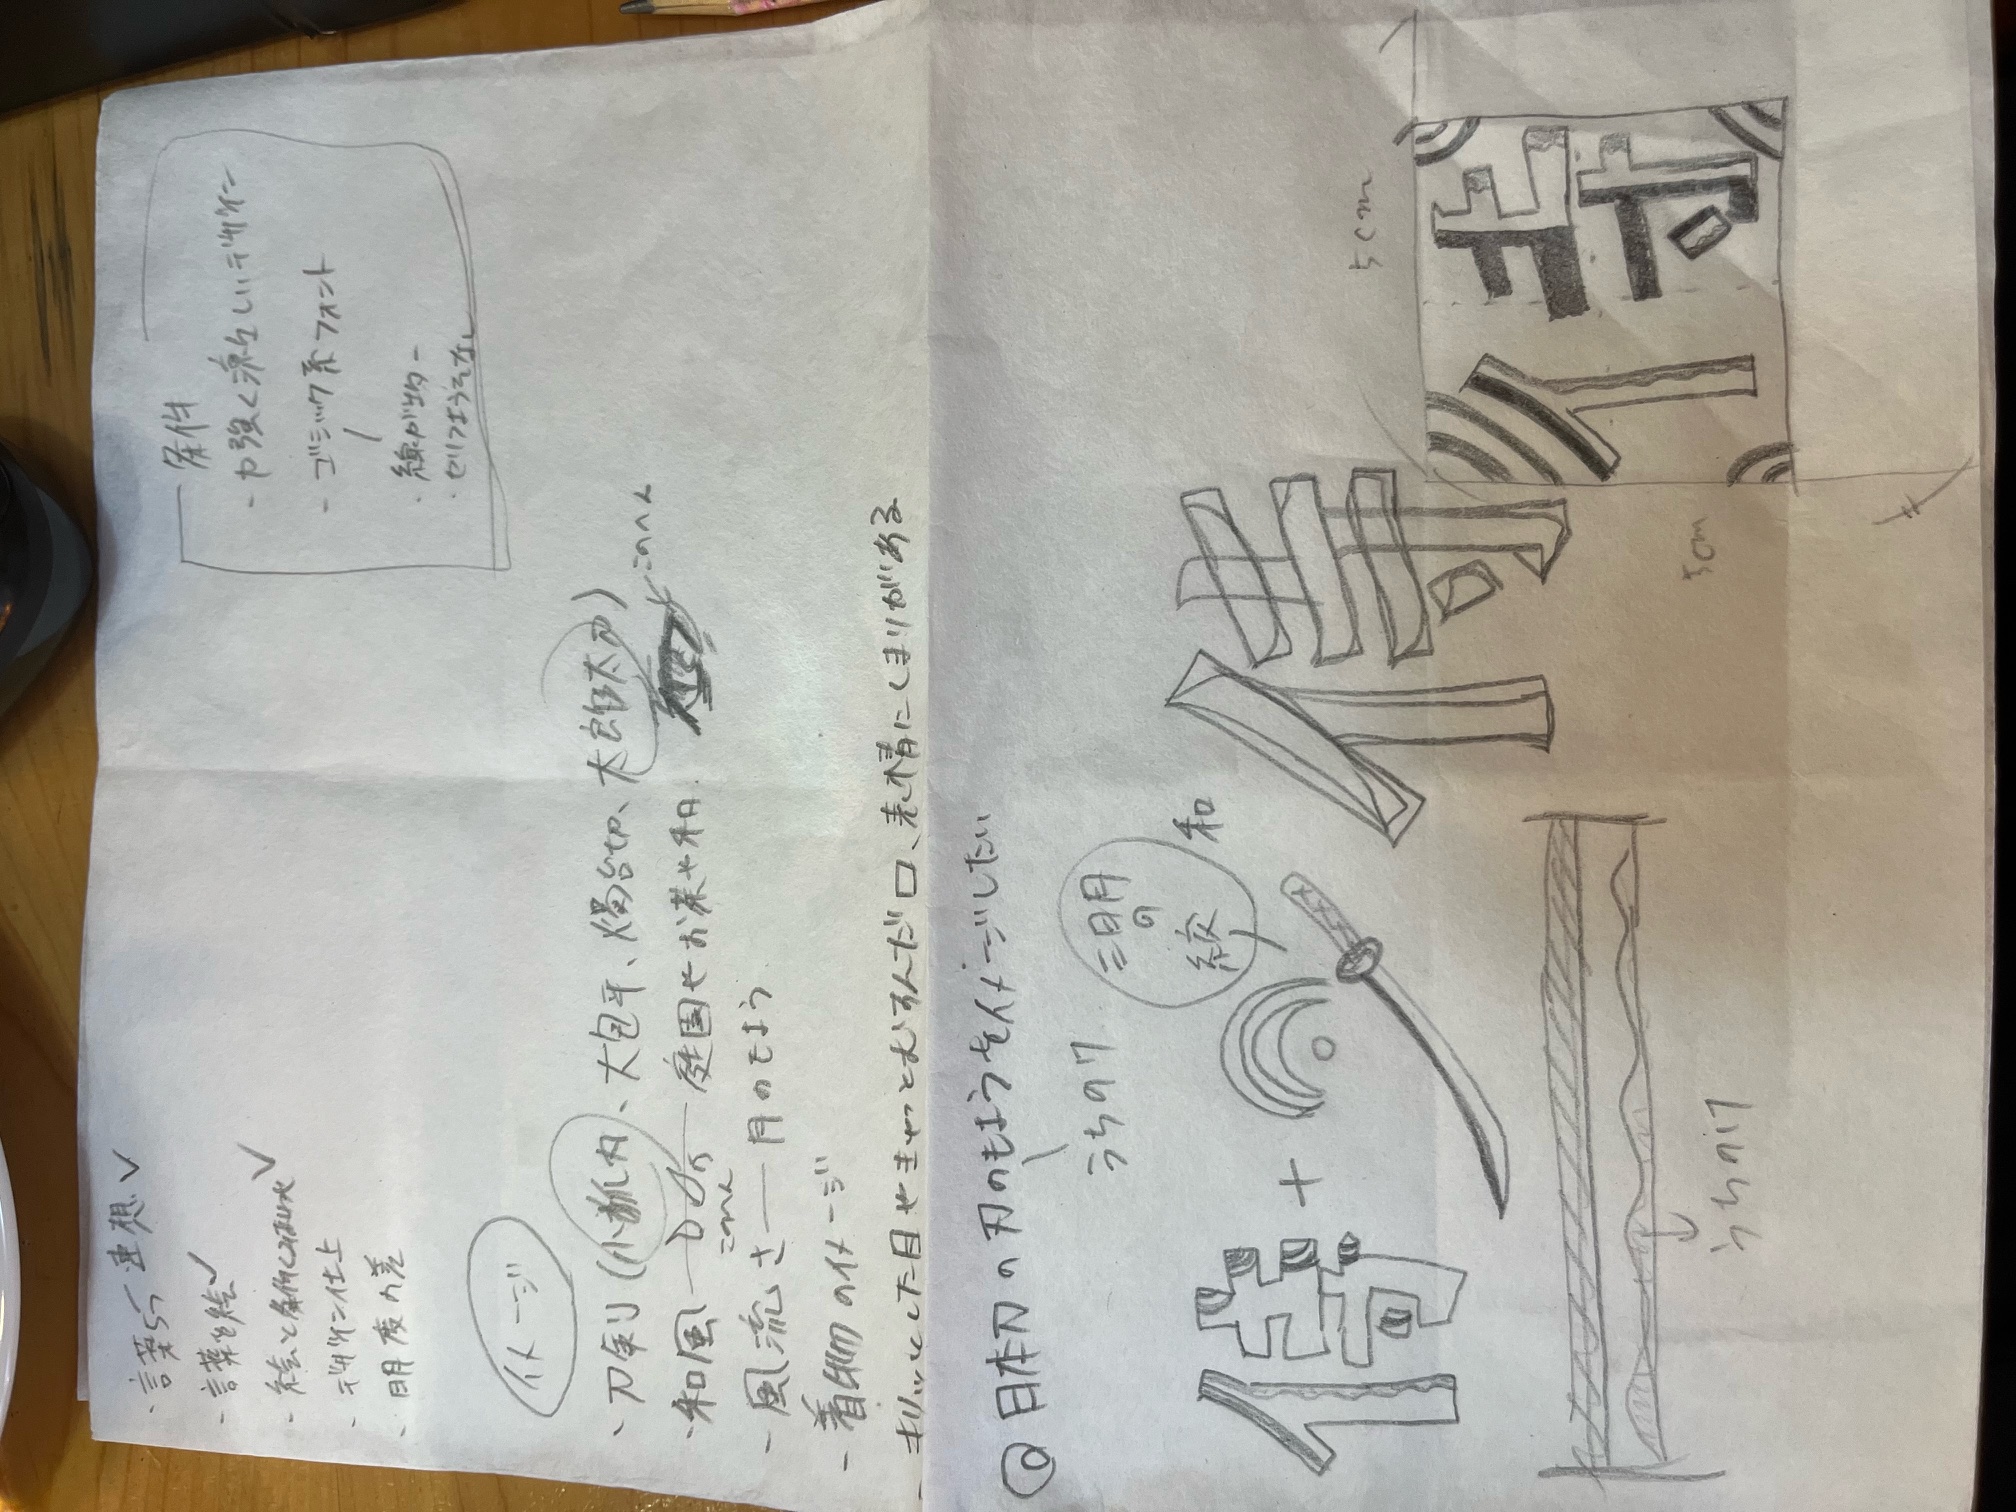 ・言葉から連想 ✓
- 言葉を絵 ✓
- 絵と条件くみあわせ ✓
- デザイン仕上
- 明度の差
条件
- 力強く凛々しいデザイン
- ゴシック系フォント
・線が均一
・セリフようそなし
イメージ
・刀剣(小狐丸、大包平、燭台切、太郎太刀)
このへん
・和風 庭園やお茶や和
このへん
- 風流さ — 月のもよう
- 着物のイメージ
- キリッとした目やきゅっとむすんだ口、表情にしまりがある
◎日本刀の刃のもようをイメージしたい
うちのけ
三日月の紋
和
侍 +
侍
5cm
5cm
侍
うちのけ